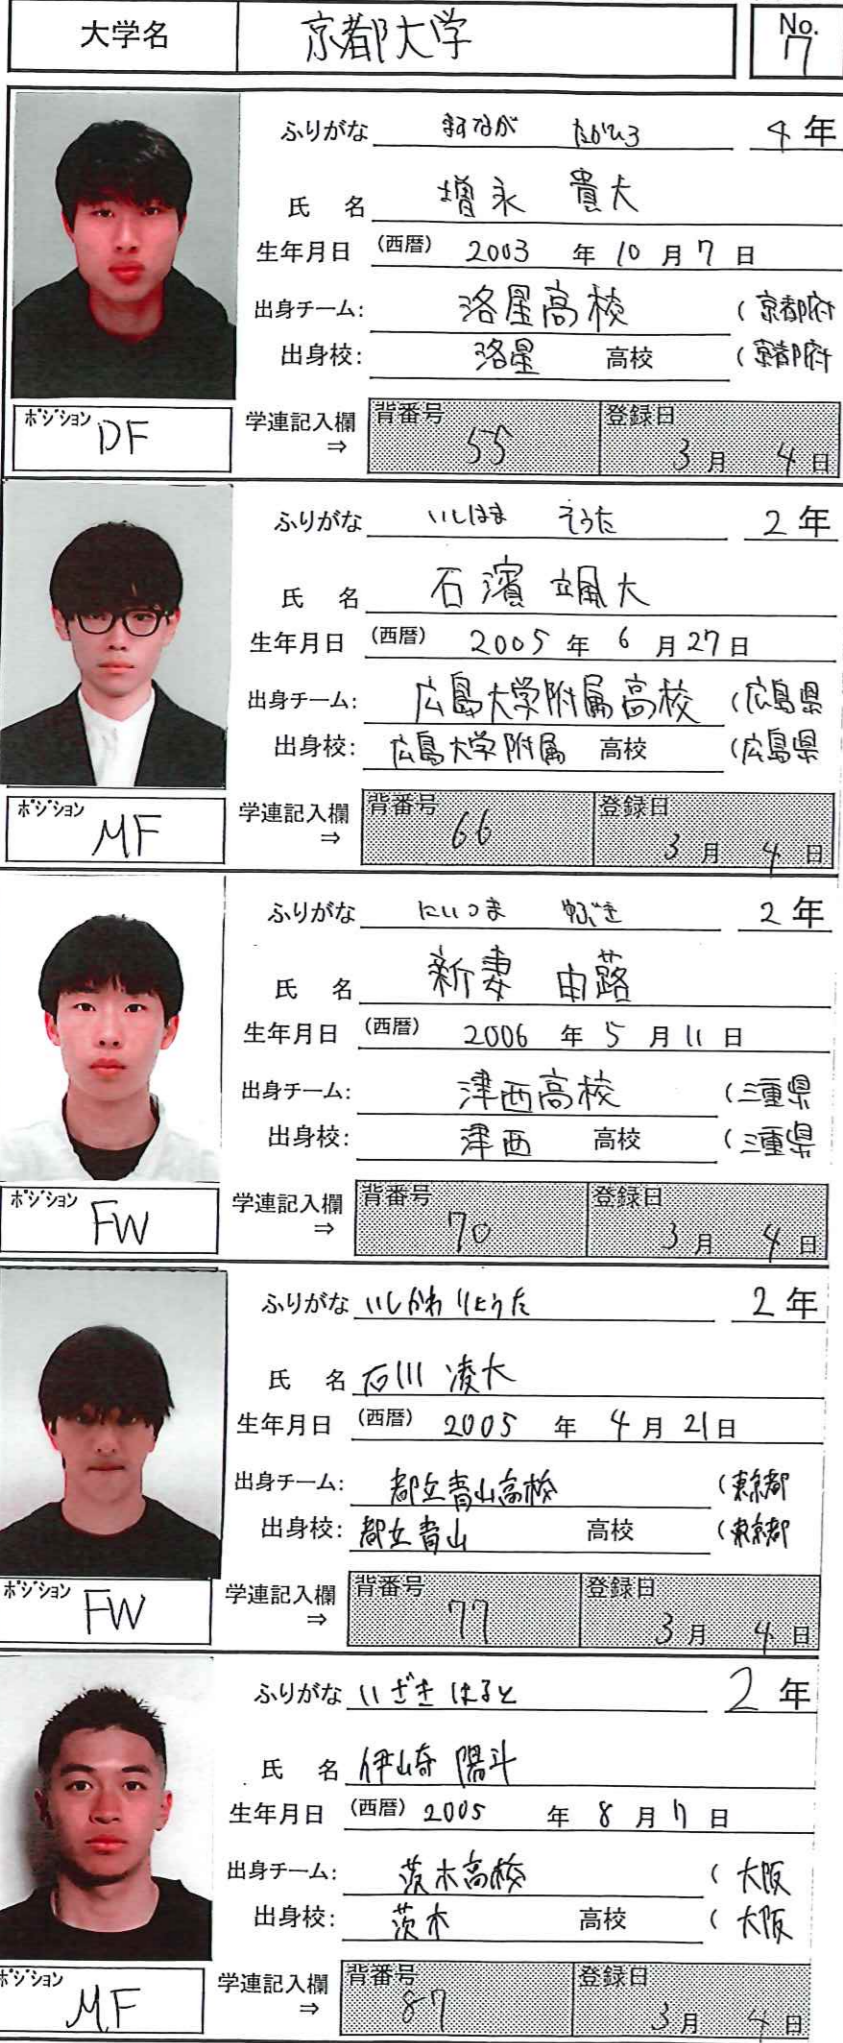 大学名 京都大学 No. 7
ふりがな ますなが たかひろ 4年
氏名 增永 貴大
生年月日 (西暦) 2003 年 10 月 7 日
出身チーム: 洛星高校 (京都府
出身校: 洛星 高校 (京都府
ポジション DF 学連記入欄 ⇒ 背番号 55 登録日 3月 4日
ふりがな いしはま そうた 2年
氏名 石濱 颯大
生年月日 (西暦) 2005 年 6 月 27 日
出身チーム: 広島大学附属高校 (広島県
出身校: 広島大学附属 高校 (広島県
ポジション MF 学連記入欄 ⇒ 背番号 66 登録日 3月 4日
ふりがな にいつま ゆぶき 2年
氏名 新妻 由蕗
生年月日 (西暦) 2006 年 5 月 11 日
出身チーム: 津西高校 (三重県
出身校: 津西 高校 (三重県
ポジション FW 学連記入欄 ⇒ 背番号 70 登録日 3月 4日
ふりがな いしかわ りょうた 2年
氏名 石川 凌大
生年月日 (西暦) 2005 年 4 月 21 日
出身チーム: 都立青山高校 (東京都
出身校: 都立青山 高校 (東京都
ポジション FW 学連記入欄 ⇒ 背番号 77 登録日 3月 4日
ふりがな いざき はると 2年
氏名 伊崎 陽斗
生年月日 (西暦) 2005 年 8 月 日
出身チーム: 茨木高校 (大阪
出身校: 茨木 高校 (大阪
ポジション MF 学連記入欄 ⇒ 背番号 87 登録日 3月 4日